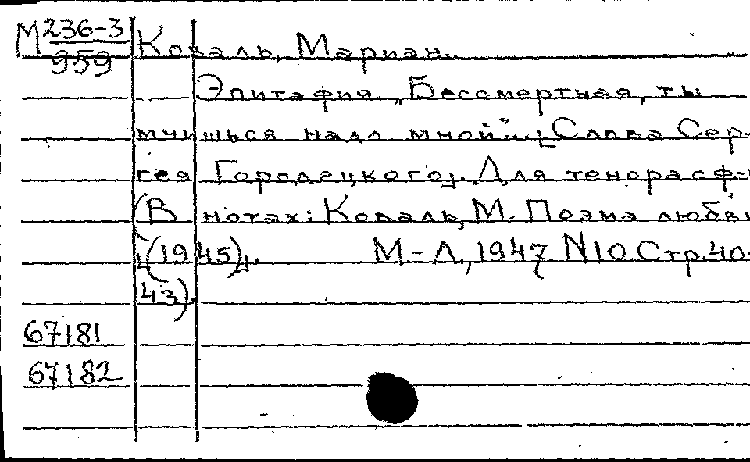 М 236-3 Коваль, Мариан.
959
Эпитафия „Бессмертная, ты
мчишься надо мной..." [Слова Сер-
гея Городецкого]. Для тенора с ф-
(В нотах: Коваль, М. Поэма любви
[(1945)]. М-Л, 1947 N10 Стр. 40-
43).
67181
67182